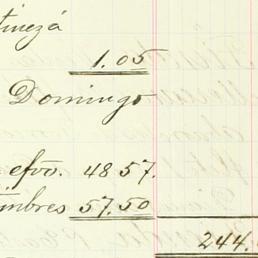 tinezá
1.05
Domingo
efvo. 48 57.
imbres 57.50
244.